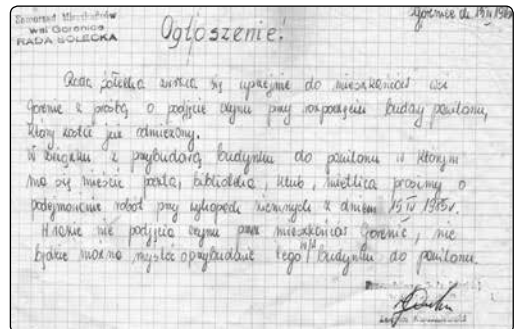 Samorząd Mieszkańców
wsi Gorenice
RADA SOŁECKA
Gorenice dn.
Ogłoszenie!
Rada sołecka zwraca się uprzejmie do mieszkańców wsi
Gorenic z prośbą o podjęcie czynu przy rozpoczęciu budowy pawilonu,
który został już odmierzony.
W związku z przybudową budynku do pawilonu w którym
ma się mieścić poczta, biblioteka, klub, świetlica prosimy o
podejmowanie robót przy wykopach ziemnych z dniem 15 IV 1985r.
W razie nie podjęcia czynu przez mieszkańców Gorenic, nie
będzie można myśleć o przybudowie tego w/w budynku do pawilonu.